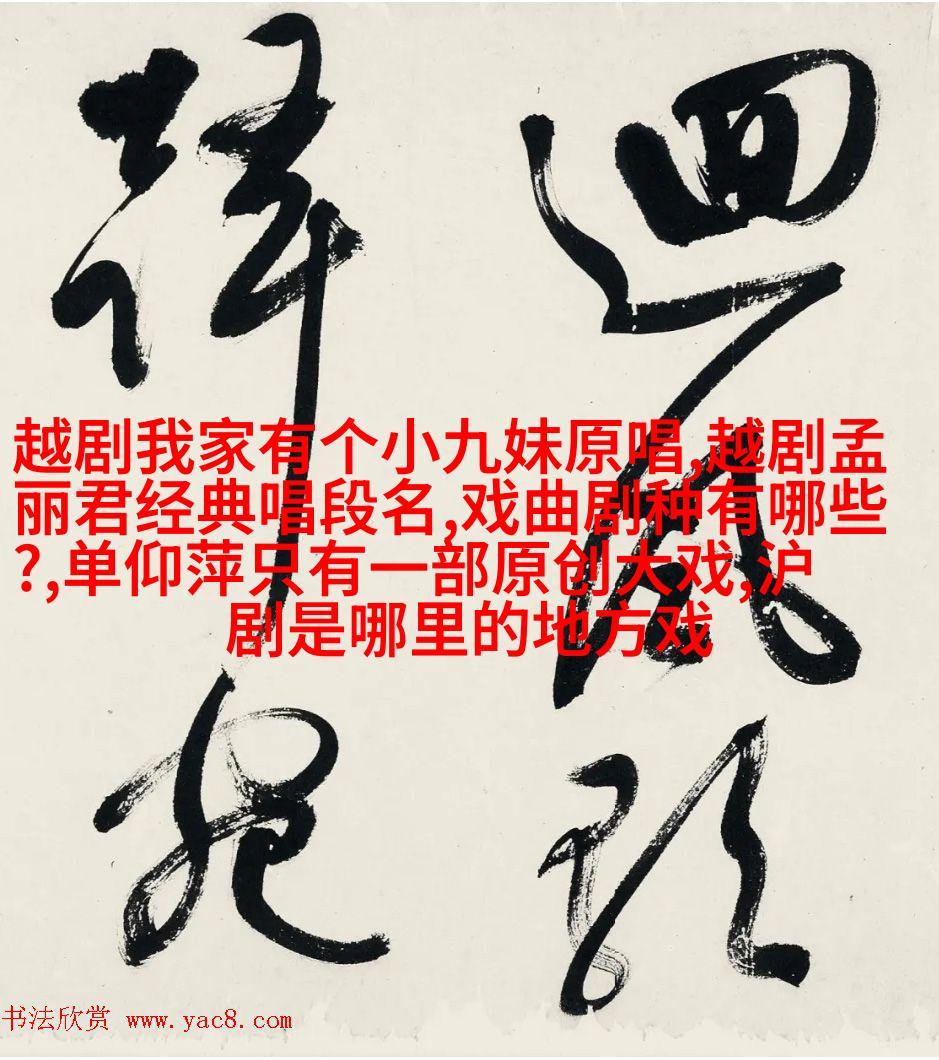 迴風
越剧我家有个小九妹原唱,越剧孟
丽君经典唱段名,戏曲剧种有哪些
?,单仰萍只有一部原创大戏,沪
剧是哪里的地方戏
书法欣赏 www.yac8.com